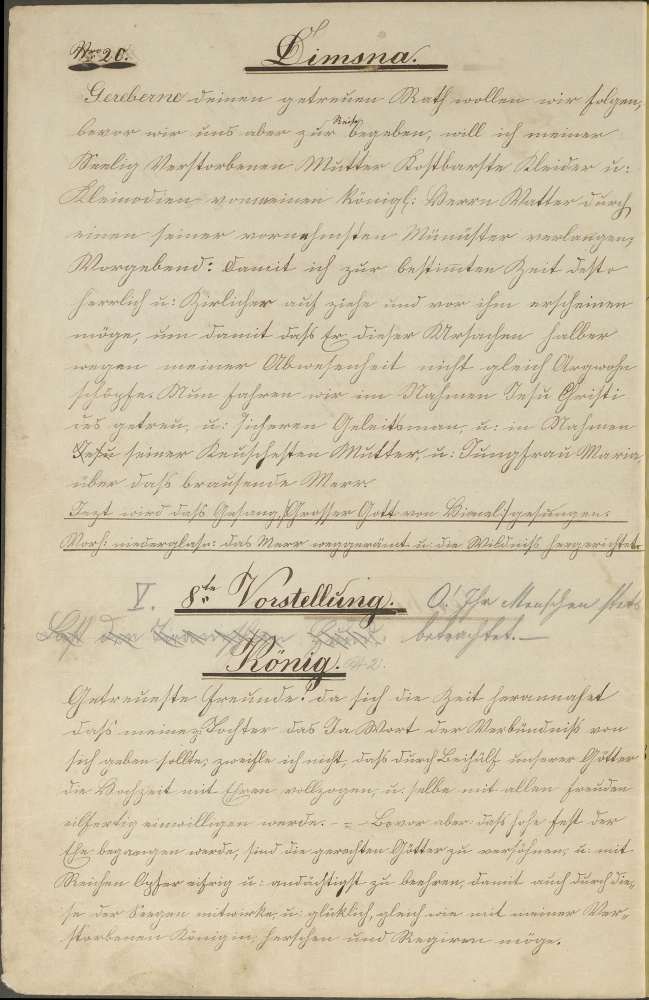 Nro 20.
Dimsna.
Gereberne deinen getreuen Rath wollen wir folgen,
Ruhe
bevor wir uns aber zur begeben, will ich meiner
Seelig Verstorbenen Mutter Kostbarste Kleider u:
Klemodien von meinen Königl: Herrn Vatter durch
einen seiner vornehmsten Münüster verlangen,
Vorgebend: damit ich zur bestimten Zeit desto
herrlich u: Zirlicher auf ziehe und vor ihm erscheinen
möge, um damit dass Er dieser Ursachen halber
wegen meiner Abwesenheit nicht gleich Argwohn
schöpfe. Nun fahren wir im Nahmen Jesu Christi
des getreu, u: sicheren Geleitsman, u: in Nahmen
Jesu seiner Keuschesten Mutter, u: Jungfrau Maria,
über dass brausende Meer
Jezt wird dass Gesang, Grosser Gott von Himel, gesungen.
Vorh: niederglassn: das Meer weggerämt u: die Wildniss hergerichtet.
V. 8te Vorstellung. O! Ihr Menschen stets
Last der betrachtet.—
König. 2.
Getreueste Freunde! da sich die Zeit herannahet
dass meine Tochter das Ja Wort der Verbündniss von
sich geben sollte, zweifle ich nicht, dass durch Beihülf unserer Götter
die Hochzeit mit Ehren vollzogen, u. selbe mit allen Freuden
eilfertig einwilligen werde. – = – Bevor aber dass hohe Fest der
Ehe begangen werde, sind die gerechten Götter zu versöhnen, u: mit
Reichen Opfer eifrig u: andächtigst zu beehren, damit auch durch die„
se der Seegen mitwirke, u: glücklich, gleich wie mit meiner Ver„
storbenen Königin, herschen und Regiren möge.